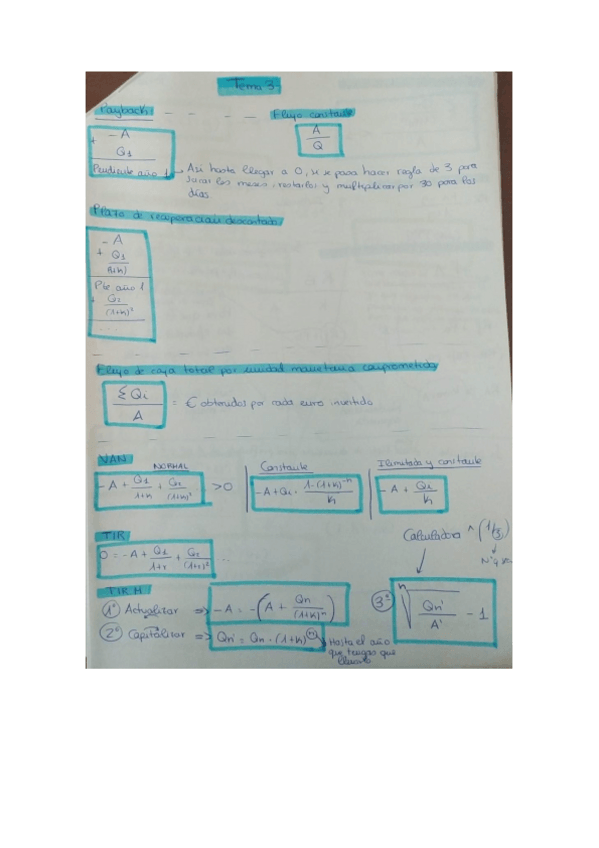 Tema 3
Payback:
Flujo constante
- A
+ Q1
Pendiente año 1
A
Q
→ Así hasta llegar a 0, para hacer regla de 3 para
sacar los meses, restarlos y multiplicar por 30 para los
días
Plazo de recuperación descontado
- A
+ Q1
(1+K)
Pte año 1
+ Q2
(1+K)²
....
Flujo de caja total por unidad monetaria comprometida
ΣQi
A
= € obtenidos por cada euro invertido
VAN
NORMAL
- A + Q1/1+K + Q2/(1+K)² > 0
Constante
- A + Qi · 1-(1+K)⁻ⁿ/K
Ilimitada y constante
- A + Qi/K
TIR
0 = - A + Q1/1+r + Q2/(1+r)² ...
Calculadora ^ (1/3)
Nº q
TIR M
1º Actualizar => - A = - (A + Qn/(1+K)ⁿ)
2º Capitalizar => Qn' = Qn · (1+K)
Hasta el año
que tengas que
3º ⁿ√ Qn'/A' - 1